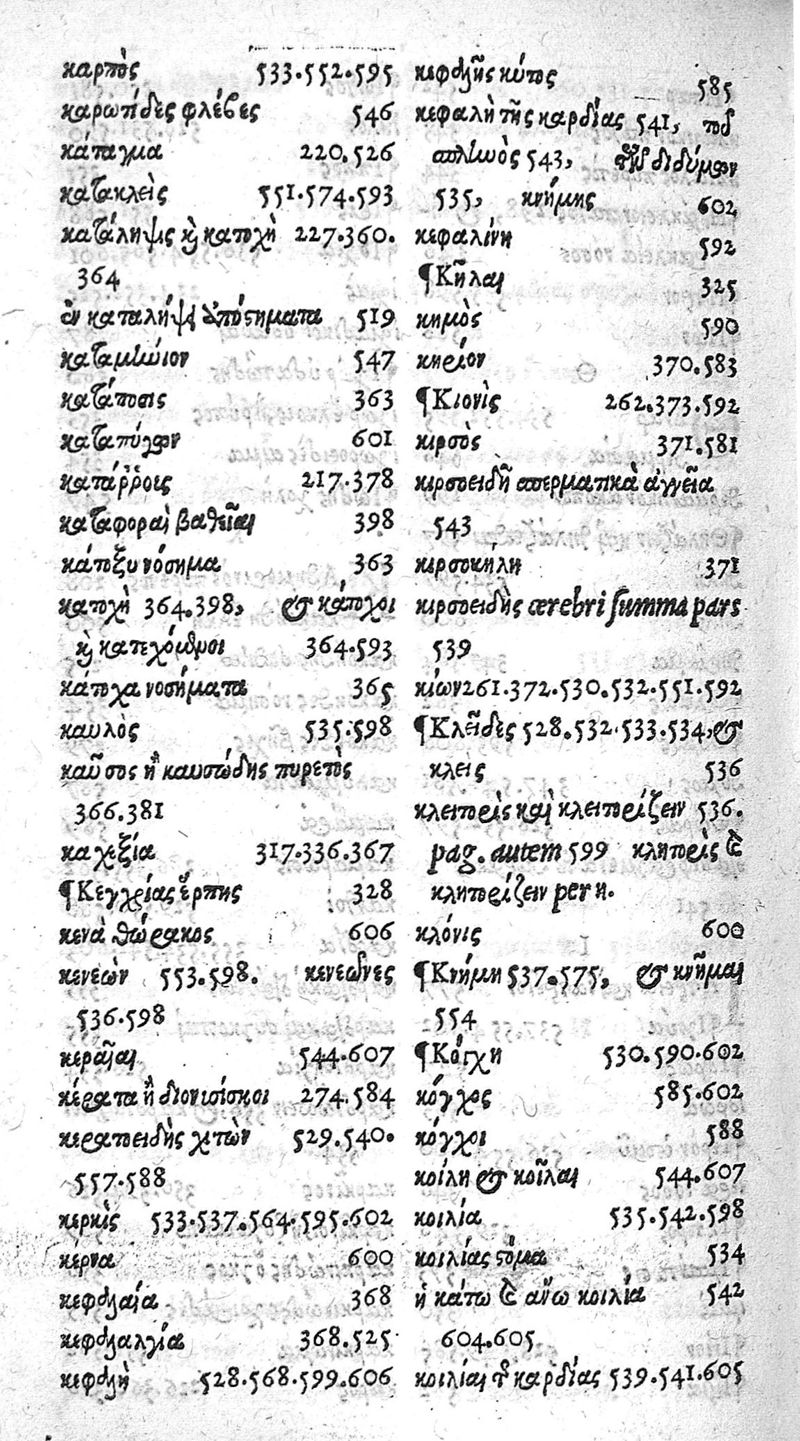 καρπὸς 533.552.595
καρωτίδες φλέβες 546
κάταγμα 220.526
κατακλεὶς 551.574.593
κατάληψις καὶ κατοχὴ 227.360.
364
ἐν καταλήψει ἀποστήματα 519
καταμήνιον 547
κατάποσις 363
καταπύγων 601
κατάῤῥοις 217.378
καταφοραὶ βαθεῖαι 398
κάτοξυ νόσημα 363
κατοχὴ 364.398, & κάτοχοι
καὶ κατεχόμενοι 364.593
κάτοχα νοσήματα 365
καυλὸς 535.598
καῦσος ἢ καυσώδης πυρετὸς
366.381
καχεξία 317.336.367
¶Κεγχρίας ἕρπης 328
κενὰ θώρακος 606
κενεὼν 553.598. κενεῶνες
536.598
κεραῖαι 544.607
κέρατα ἢ διονισίσκοι 274.584
κερατοειδὴς χιτὼν 529.540.
557.588
κερκὶς 533.537.564.595.602
κέρνα 600
κεφαλαία 368
κεφαλαλγία 368.525
κεφαλὴ 528.568.599.606
κεφαλῆς κύτος 585
κεφαλὴ τῆς καρδίας 541, τοῦ
σπληνὸς 543, τῶν διδύμων
535, κνήμης 602
κεφαλίνη 592
¶Κῆλαι 325
κημὸς 590
κηρίον 370.583
¶Κιονὶς 262.373.592
κιρσὸς 371.581
κιρσοειδῆ σπερματικὰ ἀγγεῖα
543
κιρσοκήλη 371
κιρσοειδὴς cerebri summa pars
539
κίων 261.372.530.532.551.592
¶Κλεῖδες 528.532.533.534, &
κλεὶς 536
κλειτορὶς καὶ κλειτορίζειν 536.
pag. autem 599 κλητορὶς &
κλητορίζειν per η.
κλόνις 600
¶Κνήμη 537.575, & κνῆμαι
554
¶Κόγχη 530.590.602
κόγχος 585.602
κόγχοι 588
κοίλη & κοῖλαι 544.607
κοιλία 535.542.598
κοιλίας στόμα 534
ἡ κάτω & ἄνω κοιλία 542
604.605
κοιλίαι τῆς καρδίας 539.541.605